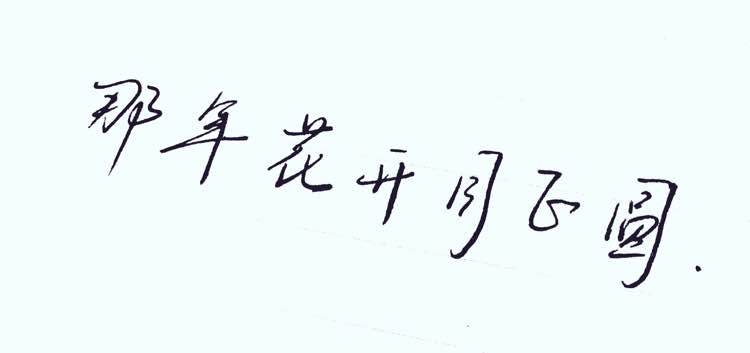 那年花开月正圆.